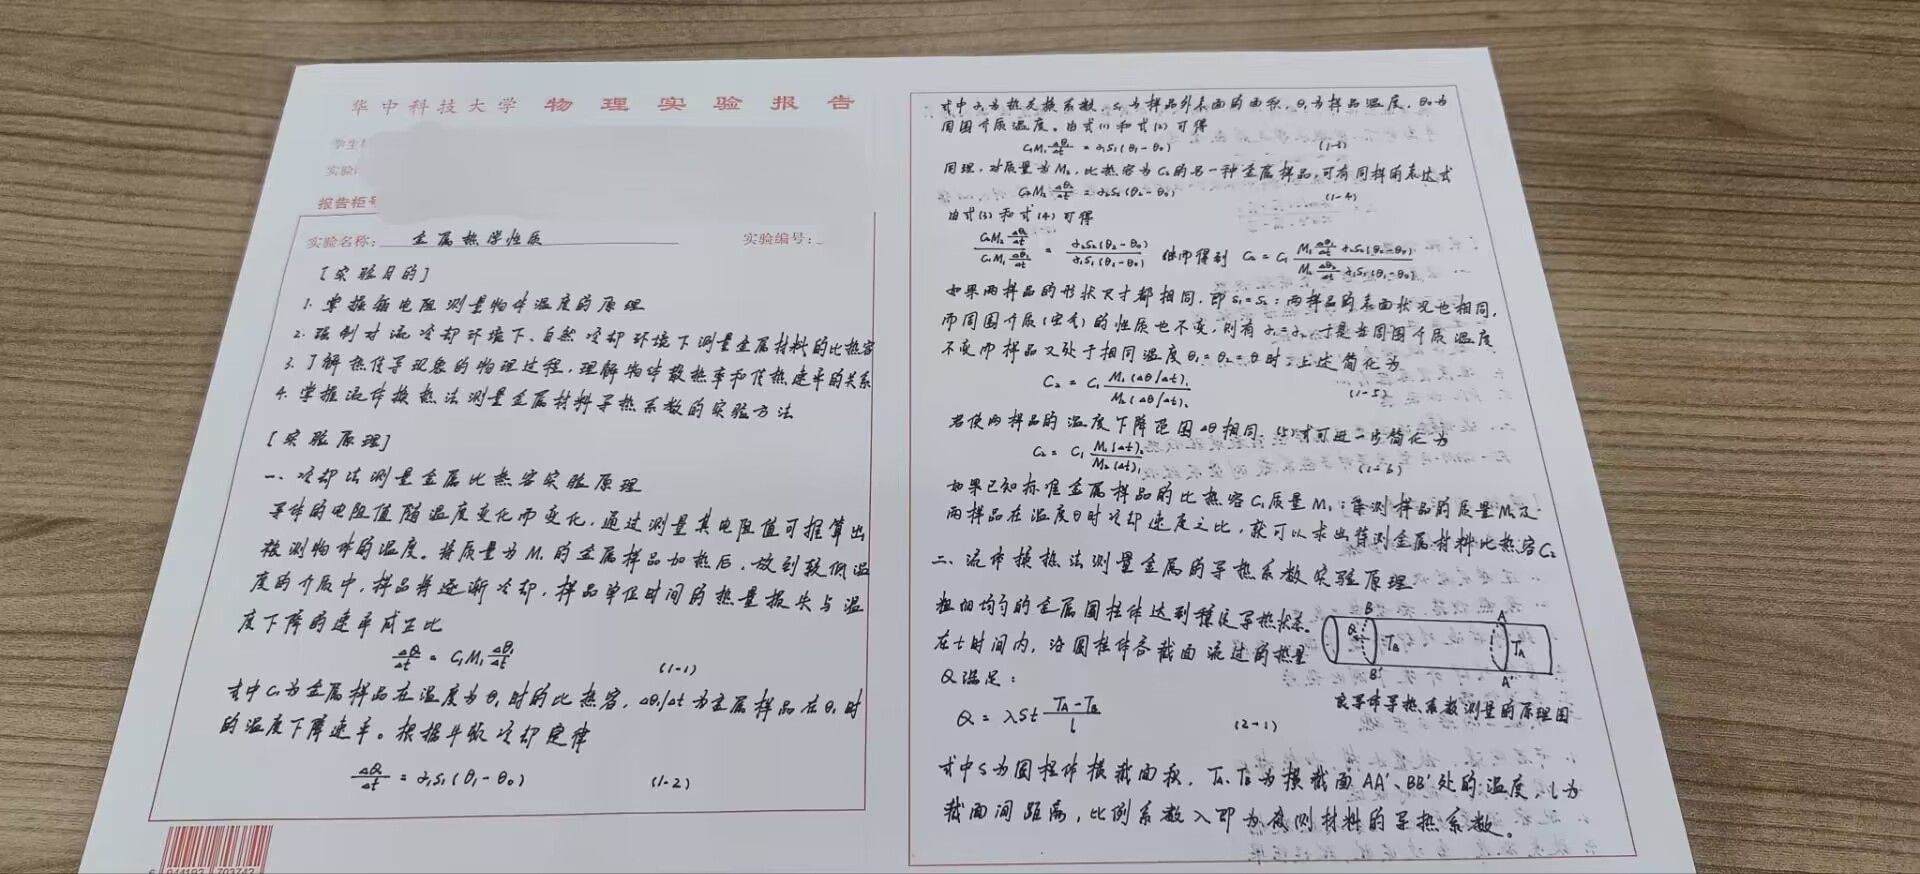 华中科技大学 物理实验报告
学生
实验
报告柜号
实验名称: 金属热学性质 实验编号:
[实验目的]
1. 掌握铂电阻测量物体温度的原理
2. 强制对流冷却环境下、自然冷却环境下测量金属材料的比热容
3. 了解热传导现象的物理过程,理解物体散热率和传热速率的关系
4. 掌握流体换热法测量金属材料导热系数的实验方法
[实验原理]
一、冷却法测量金属比热容实验原理
导体的电阻值随温度变化而变化,通过测量其电阻值可推算出
被测物体的温度。将质量为M₁的金属样品加热后,放到较低温
度的介质中,样品将逐渐冷却,样品单位时间的热量损失与温
度下降的速率成正比
ΔQ/Δt = C₁M₁ Δθ₁/Δt (1-1)
式中C₁为金属样品在温度为θ₁时的比热容,Δθ₁/Δt为金属样品在θ₁时
的温度下降速率。根据牛顿冷却定律
ΔQ/Δt = α₁S₁(θ₁-θ₀) (1-2)
6 944193 703743
式中α₁为热交换系数,S₁为样品外表面的面积,θ₁为样品温度,θ₀为
周围介质温度。由式(1)和式(2)可得
C₁M₁ Δθ₁/Δt = α₁S₁(θ₁-θ₀) (1-3)
同理,对质量为M₂,比热容为C₂的另一种金属样品,可有同样的表达式
C₂M₂ Δθ₂/Δt = α₂S₂(θ₂-θ₀) (1-4)
由式(3)和式(4)可得
(C₂M₂ Δθ₂/Δt)/(C₁M₁ Δθ₁/Δt) = α₂S₂(θ₂-θ₀)/α₁S₁(θ₁-θ₀) 继而得到 C₂ = C₁ (M₁ Δθ₁/Δt α₂S₂(θ₂-θ₀))/(M₂ Δθ₂/Δt α₁S₁(θ₁-θ₀))
如果两样品的形状尺寸都相同,即S₁=S₂;两样品的表面状况也相同,
而周围介质(空气)的性质也不变,则有α₁=α₂,于是当周围介质温度
不变而样品又处于相同温度θ₁=θ₂=θ时,上述简化为
C₂ = C₁ M₁(Δθ/Δt)₁/M₂(Δθ/Δt)₂ (1-5)
若使两样品的温度下降范围Δθ相同,(5)式可进一步简化为
C₂ = C₁ M₁(Δt)₂/M₂(Δt)₁ (1-6)
如果已知标准金属样品的比热容C₁质量M₁;待测样品的质量M₂及
两样品在温度θ时冷却速度之比,就可以求出待测金属材料比热容C₂
二、流体换热法测量金属的导热系数实验原理
粗细均匀的金属圆柱体达到稳定导热状态。
在t时间内,沿圆柱体各截面流过的热量
Q满足:
Q = λSt (T_A-T_B)/l (2-1)
B A
Q T_B T_A
B' A'
良导体导热系数测量的原理图
式中S为圆柱体横截面积,T_A、T_B为横截面AA'、BB'处的温度,l为
截面间距离,比例系数λ即为被测材料的导热系数。